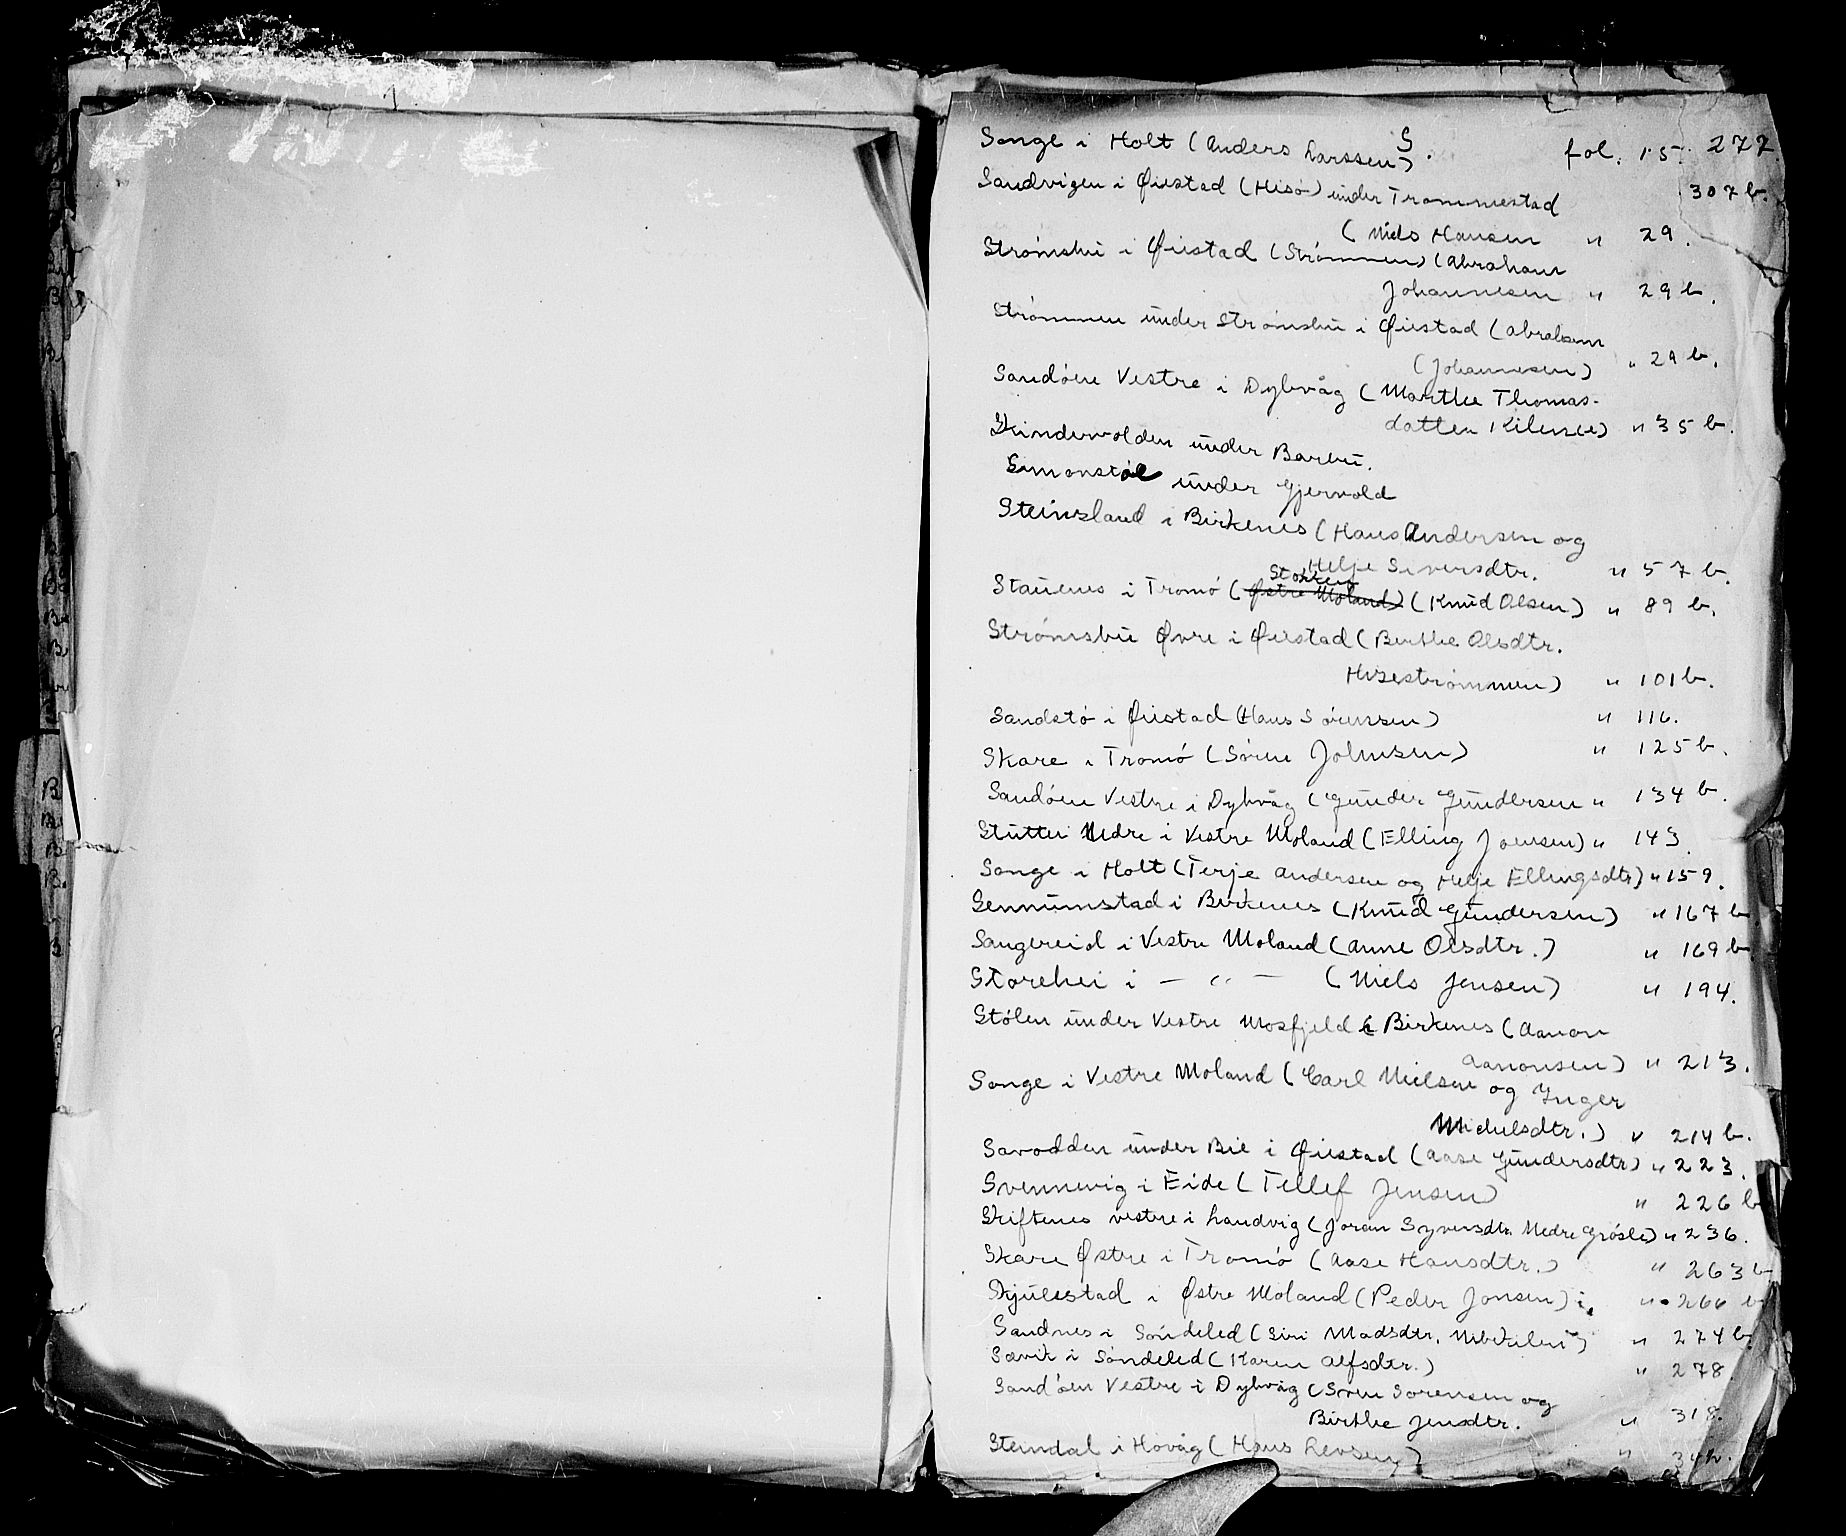 S.
Songe i Holt (Anders Larssen) fol. 15. 277
307 b.
Sandvigen i Øiestad (Hisø) under Trommestad
(Niels Hansen " 29.
Strømsbu i Øiestad (Strømmen) (Abraham
Johannesen " 29 b.
Strømmen under Strømsbu i Øiestad (Abraham
(Johannesen) " 29 b.
Sandøen Vestre i Dybvåg (Marthe Thomas-
datter Kilen(e) " 35 b.
Skindervolden under Barbu.
Simonstøl under Gjervold
Steinsland i Birkenes (Hans Andersen og
Helje Siversdtr. " 57 b.
Stokken
Stauenes i Tromø (Østre Moland) (Knud Olsen) " 89 b.
Strømsbu Øvre i Øiestad (Birthe Olsdtr.
Hisestrømmen) " 101 b.
Sandstø i Øiestad (Hans Sørenssen) " 116.
Skare i Tromø (Sørine Johnsen) " 125 b.
Sandøen Vestre i Dybvåg (Gunder Gundersen " 134 b.
Stutten Nedre i Vestre Moland (Elling Joensen) " 143.
Songe i Holt (Terje Andersen og Helje Ellingsdtr) " 159.
Sennumstad i Birkenes (Knud Gundersen) " 167 b
Saugereid i Vestre Moland (Anne Olsdtr.) " 169 b
Storehei i — " — (Niels Jensen) " 194.
Stølen under Vestre Mosfjeld i Birkenes (Aanon
Aanonsen) " 213.
Songe i Vestre Moland (Carl Nielsen og Inger
Michelsdtr.) " 214 b.
Savodden under Bie i Øiestad (Aase Gundersdtr) " 223.
Svennevig i Eide (Tellef Jensen) " 226 b
Skiftenes vestre i Landvig (Joran Syversdtr. Nedre Grøsle) " 236.
Skare Østre i Tromø (Aase Hansdtr.) " 263 b
Skjulestad i Østre Moland (Peder Jonsen) i. " 266 b
Sandnes i Søndeled (Siri Madsdtr. " 274 b.
Sævik i Søndeled (Karen Alfsdtr.) " 278
Sandøen Vestre i Dybvåg (Sven Sørensen og
Birthe Jensdtr. " 318.
Steindal i Høvåg (Hans Levsen) "